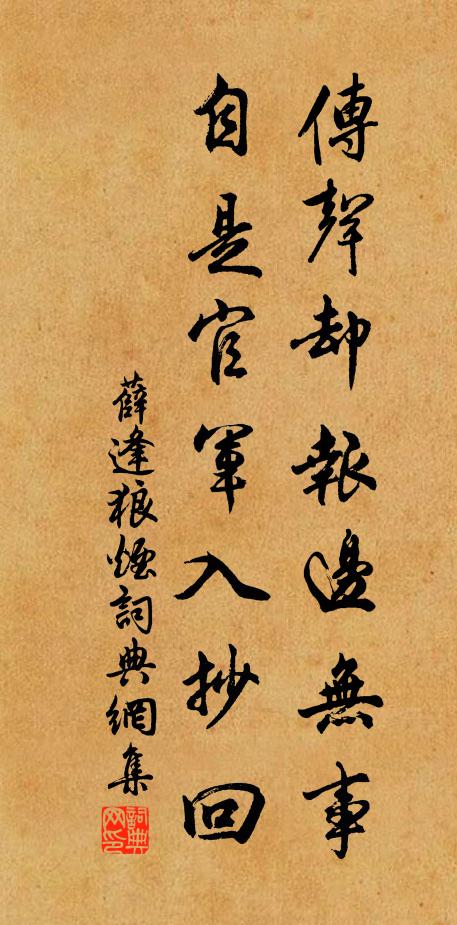 傳聲却報邊無事
自是官軍入抄回
薛逢狼煙詞典網集
詞典网印